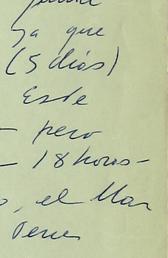 ya que
(5 días)
Este
– pero
– 18 horas –
, el Mar